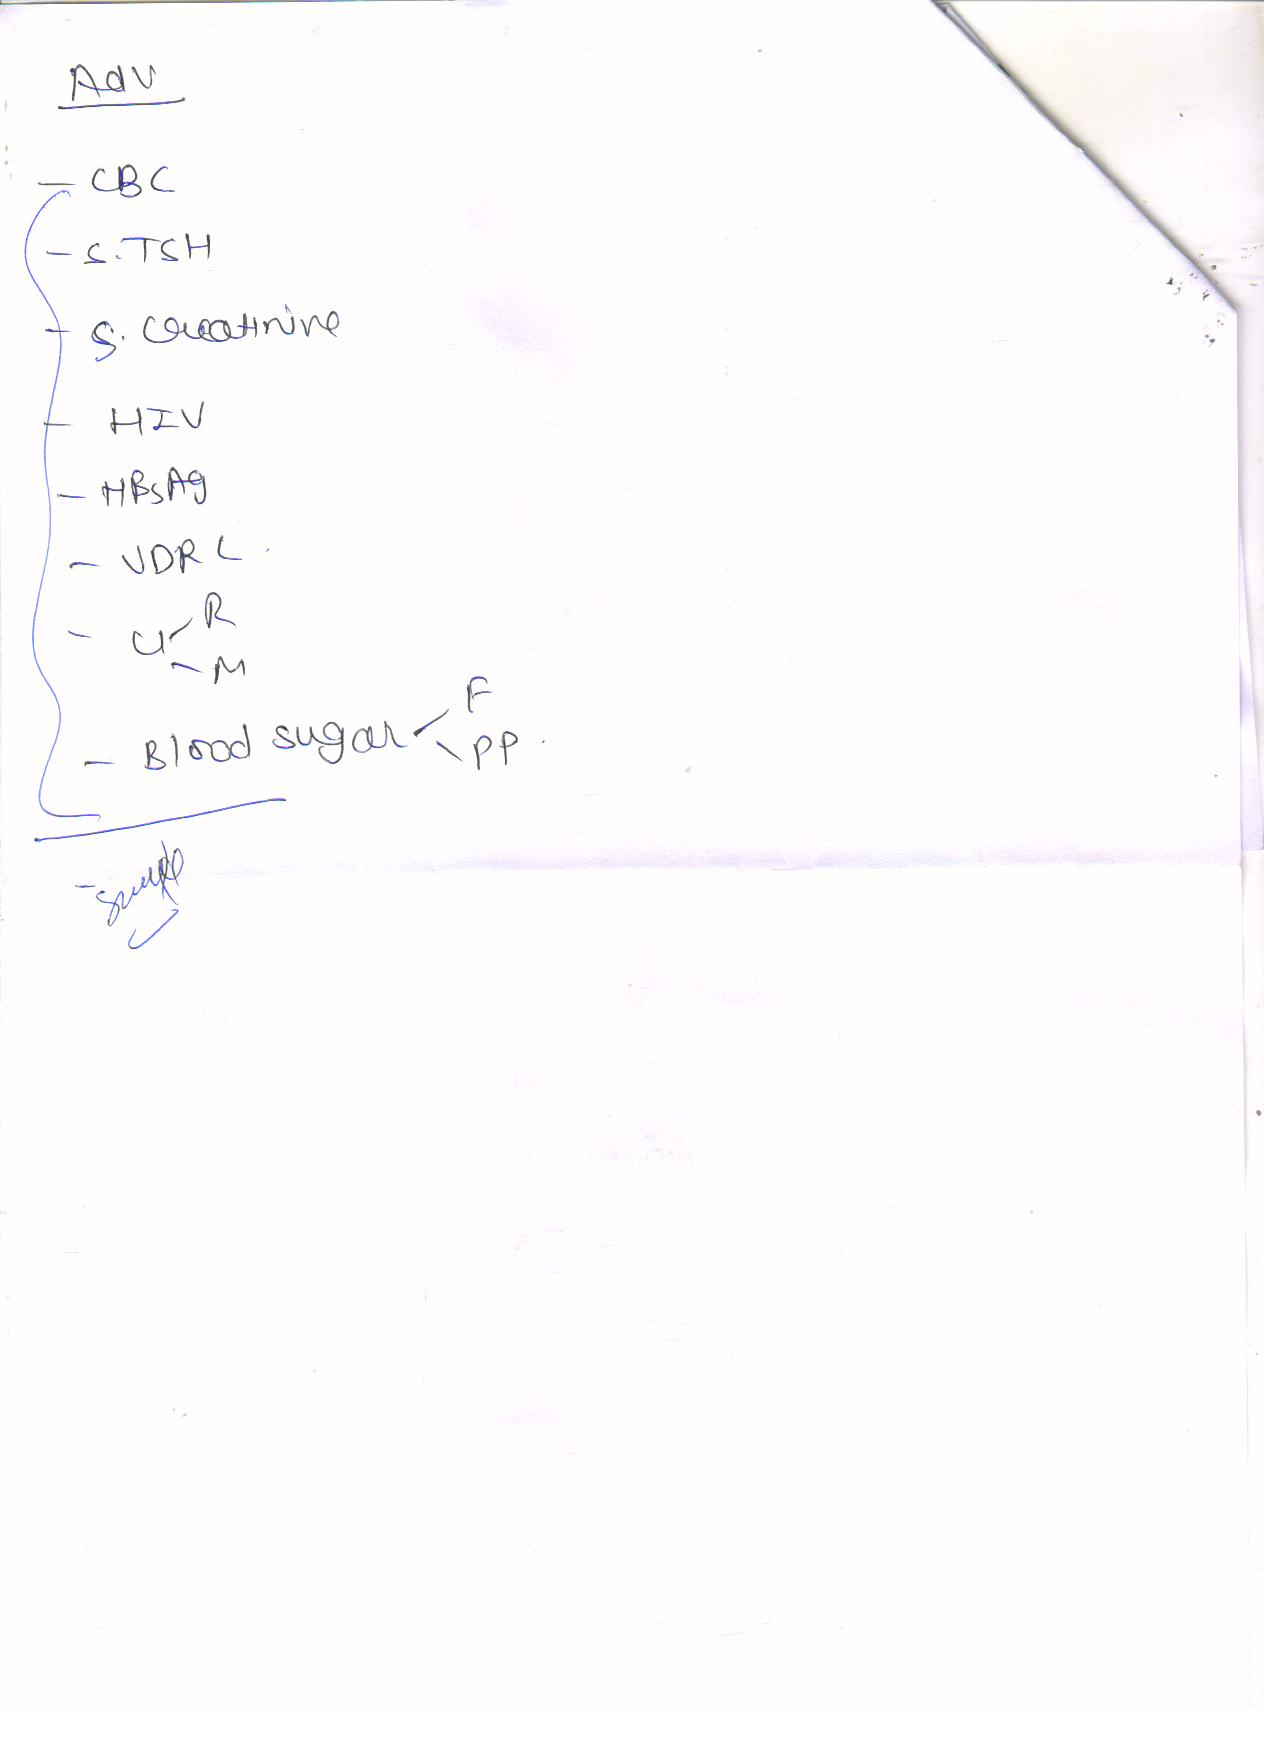 Adv
- CBC
- S.TSH
- S. Creatinine
- HIV
- HBsAg
- VDRL
- U R
M
- Blood sugar F
PP.
- Sample